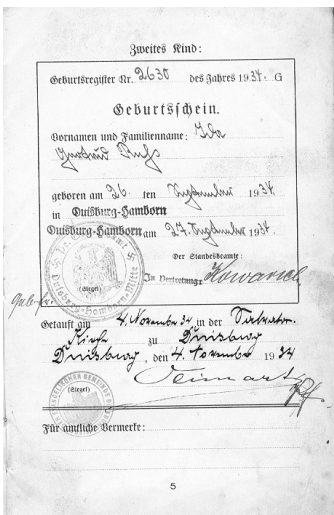 Zweites Kind:
Geburtsregister Nr. 2630 des Jahres 1934. G
Geburtsschein.
Vornamen und Familienname: Ida
Gertrud
geboren am 26. ten September 1934.
in Duisburg-Hamborn
Duisburg-Hamborn am 27. September 1934.
Der Standesbeamte:
In Vertretung:
(Siegel)
Getauft am 4. November 34 in der Salvator-
Kirche zu Duisburg
Duisburg, den 4. November 1934
(Siegel)
Für amtliche Vermerke:
5